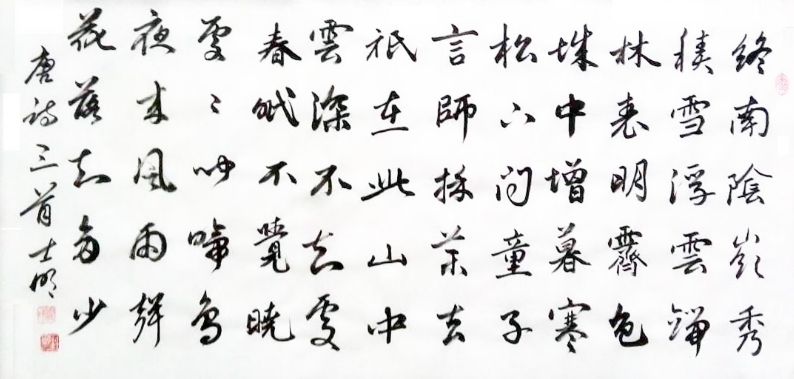 終南陰嶺秀
積雪浮雲端
林表明霽色
城中增暮寒
松下問童子
言師採藥去
祇在此山中
雲深不知處
春眠不覺曉
處〻聞啼鳥
夜来風雨聲
花落知多少
唐詩三首 士明